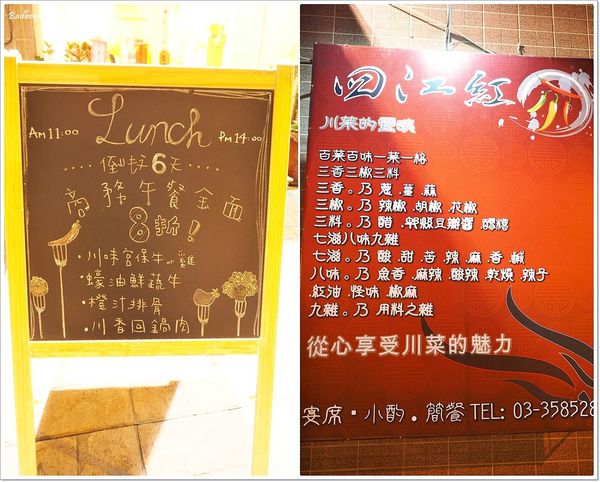 Lunch
AM 11:00
PM 14:00
倒扣6天
商務午餐全面
8折!
•川味宮保牛or雞
•蠔油鮮蔬牛
•橙汁排骨
•川香回鍋肉
四江紅
川菜的靈魂
百菜百味一菜一格
三香三椒三料
三香.乃 蔥.薑.蒜
三椒.乃 辣椒.胡椒.花椒
三料.乃 醋.郫縣豆瓣醬.醪糟
七滋八味九雜
七滋.乃 酸.甜.苦.辣.麻.香.鹹
八味.乃 魚香.麻辣.酸辣.乾燒.辣子
.紅油.怪味.椒麻
九雜.乃 用料之雜
從心享受川菜的魅力
宴席.小酌.簡餐 TEL: 03-358528